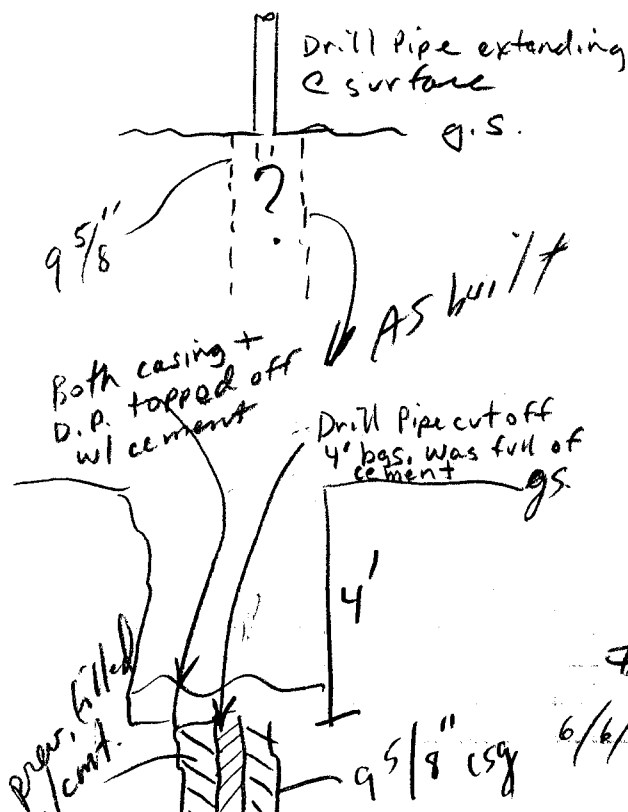 Drill Pipe extending
@ surface
g.s.
?
9 5/8"
AS built
Both casing +
D.P. topped off
w/ cement
Drill Pipe cut off
4' bgs, was full of
cement
gs.
4'
prev. filled
w/ cmt.
9 5/8" csg
6/6/